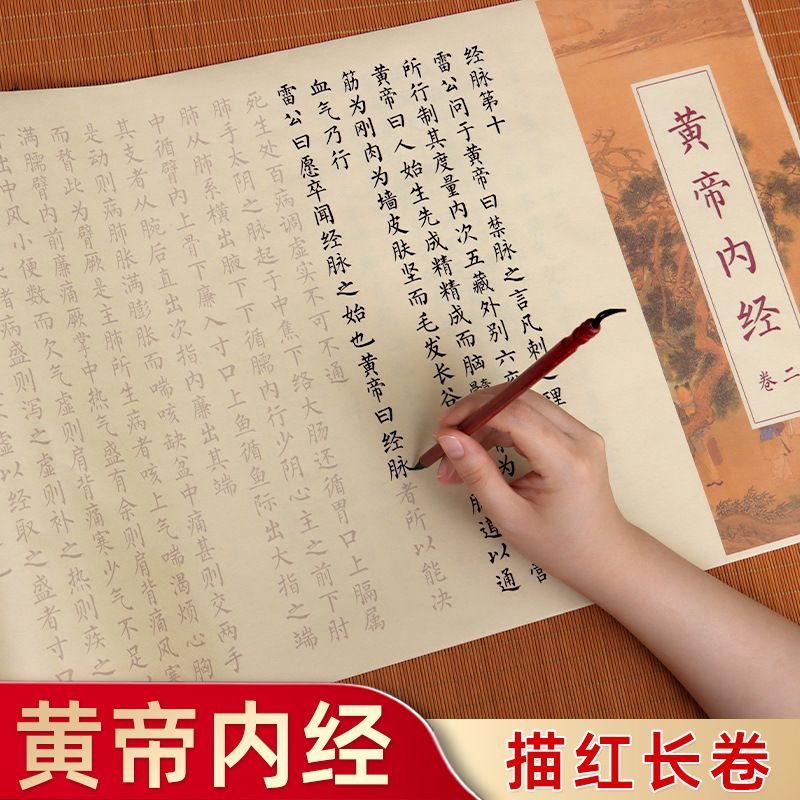 黄帝内经
卷二
经脉第十
雷公问于黄帝曰禁脉之言凡刺理营
所行制其度量内次五藏外别六
黄帝曰人始生先成精精成而脑髓为
筋为刚肉为墙皮肤坚而毛发长谷脉道以通
血气乃行
雷公曰愿卒闻经脉之始也黄帝曰经脉者所以能决
死生处百病调虚实不可不通
肺手太阴之脉起于中焦下络大肠还循胃口上膈属
肺从肺系横出腋下下循臑内行少阴心主之前下肘
中循臂内上骨下廉入寸口上鱼循鱼际出大指之端
其支者从腕后直出次指内廉出其端
是动则病肺胀满膨胀而喘咳缺盆中痛甚则交两手
而瞀此为臂厥是主肺所生病者咳上气喘渴烦心胸
满臑臂内前廉痛厥掌中热气盛有余则肩背痛风寒
出中风小便数而欠气虚则肩背痛寒少气不足
者病盛则泻之虚则补之热则疾之
虚以经取之盛者寸口
黄帝内经
描红长卷